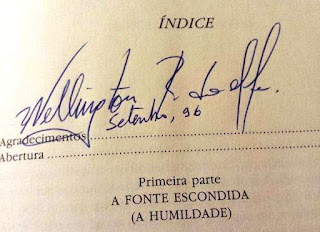 ÍNDICE
Wellington R.
Setembro, 96
Agradecimentos
Abertura
Primeira parte
A FONTE ESCONDIDA
(A HUMILDADE)